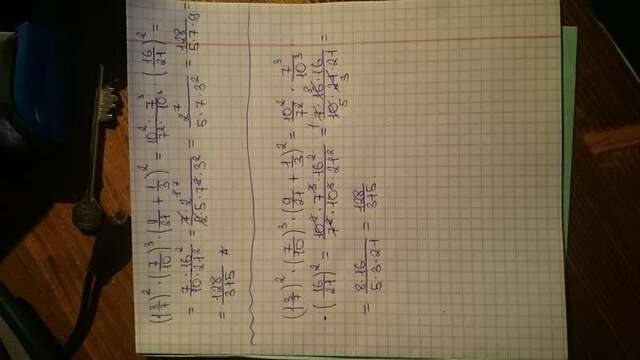 (1 3/7)² · (7/10)³ · (9/21 + 1/3)² = 10²/7² · 7³/10³ · (16/21)² =
= 7·16²/10·21² = 7·2⁸ ⁷/2·5·7²·3² = 2⁷/5·7·3² = 128/5·7·9 =
= 128/315
(1 3/7)² · (7/10)³ · (9/21 + 1/3)² = 10²/7² · 7³/10³ ·
· (16/21)² = 10²·7³·16²/7²·10³·21² = ¹7·16⁸·16/10₅·21₃·21 =
= 8·16/5·3·21 = 128/315